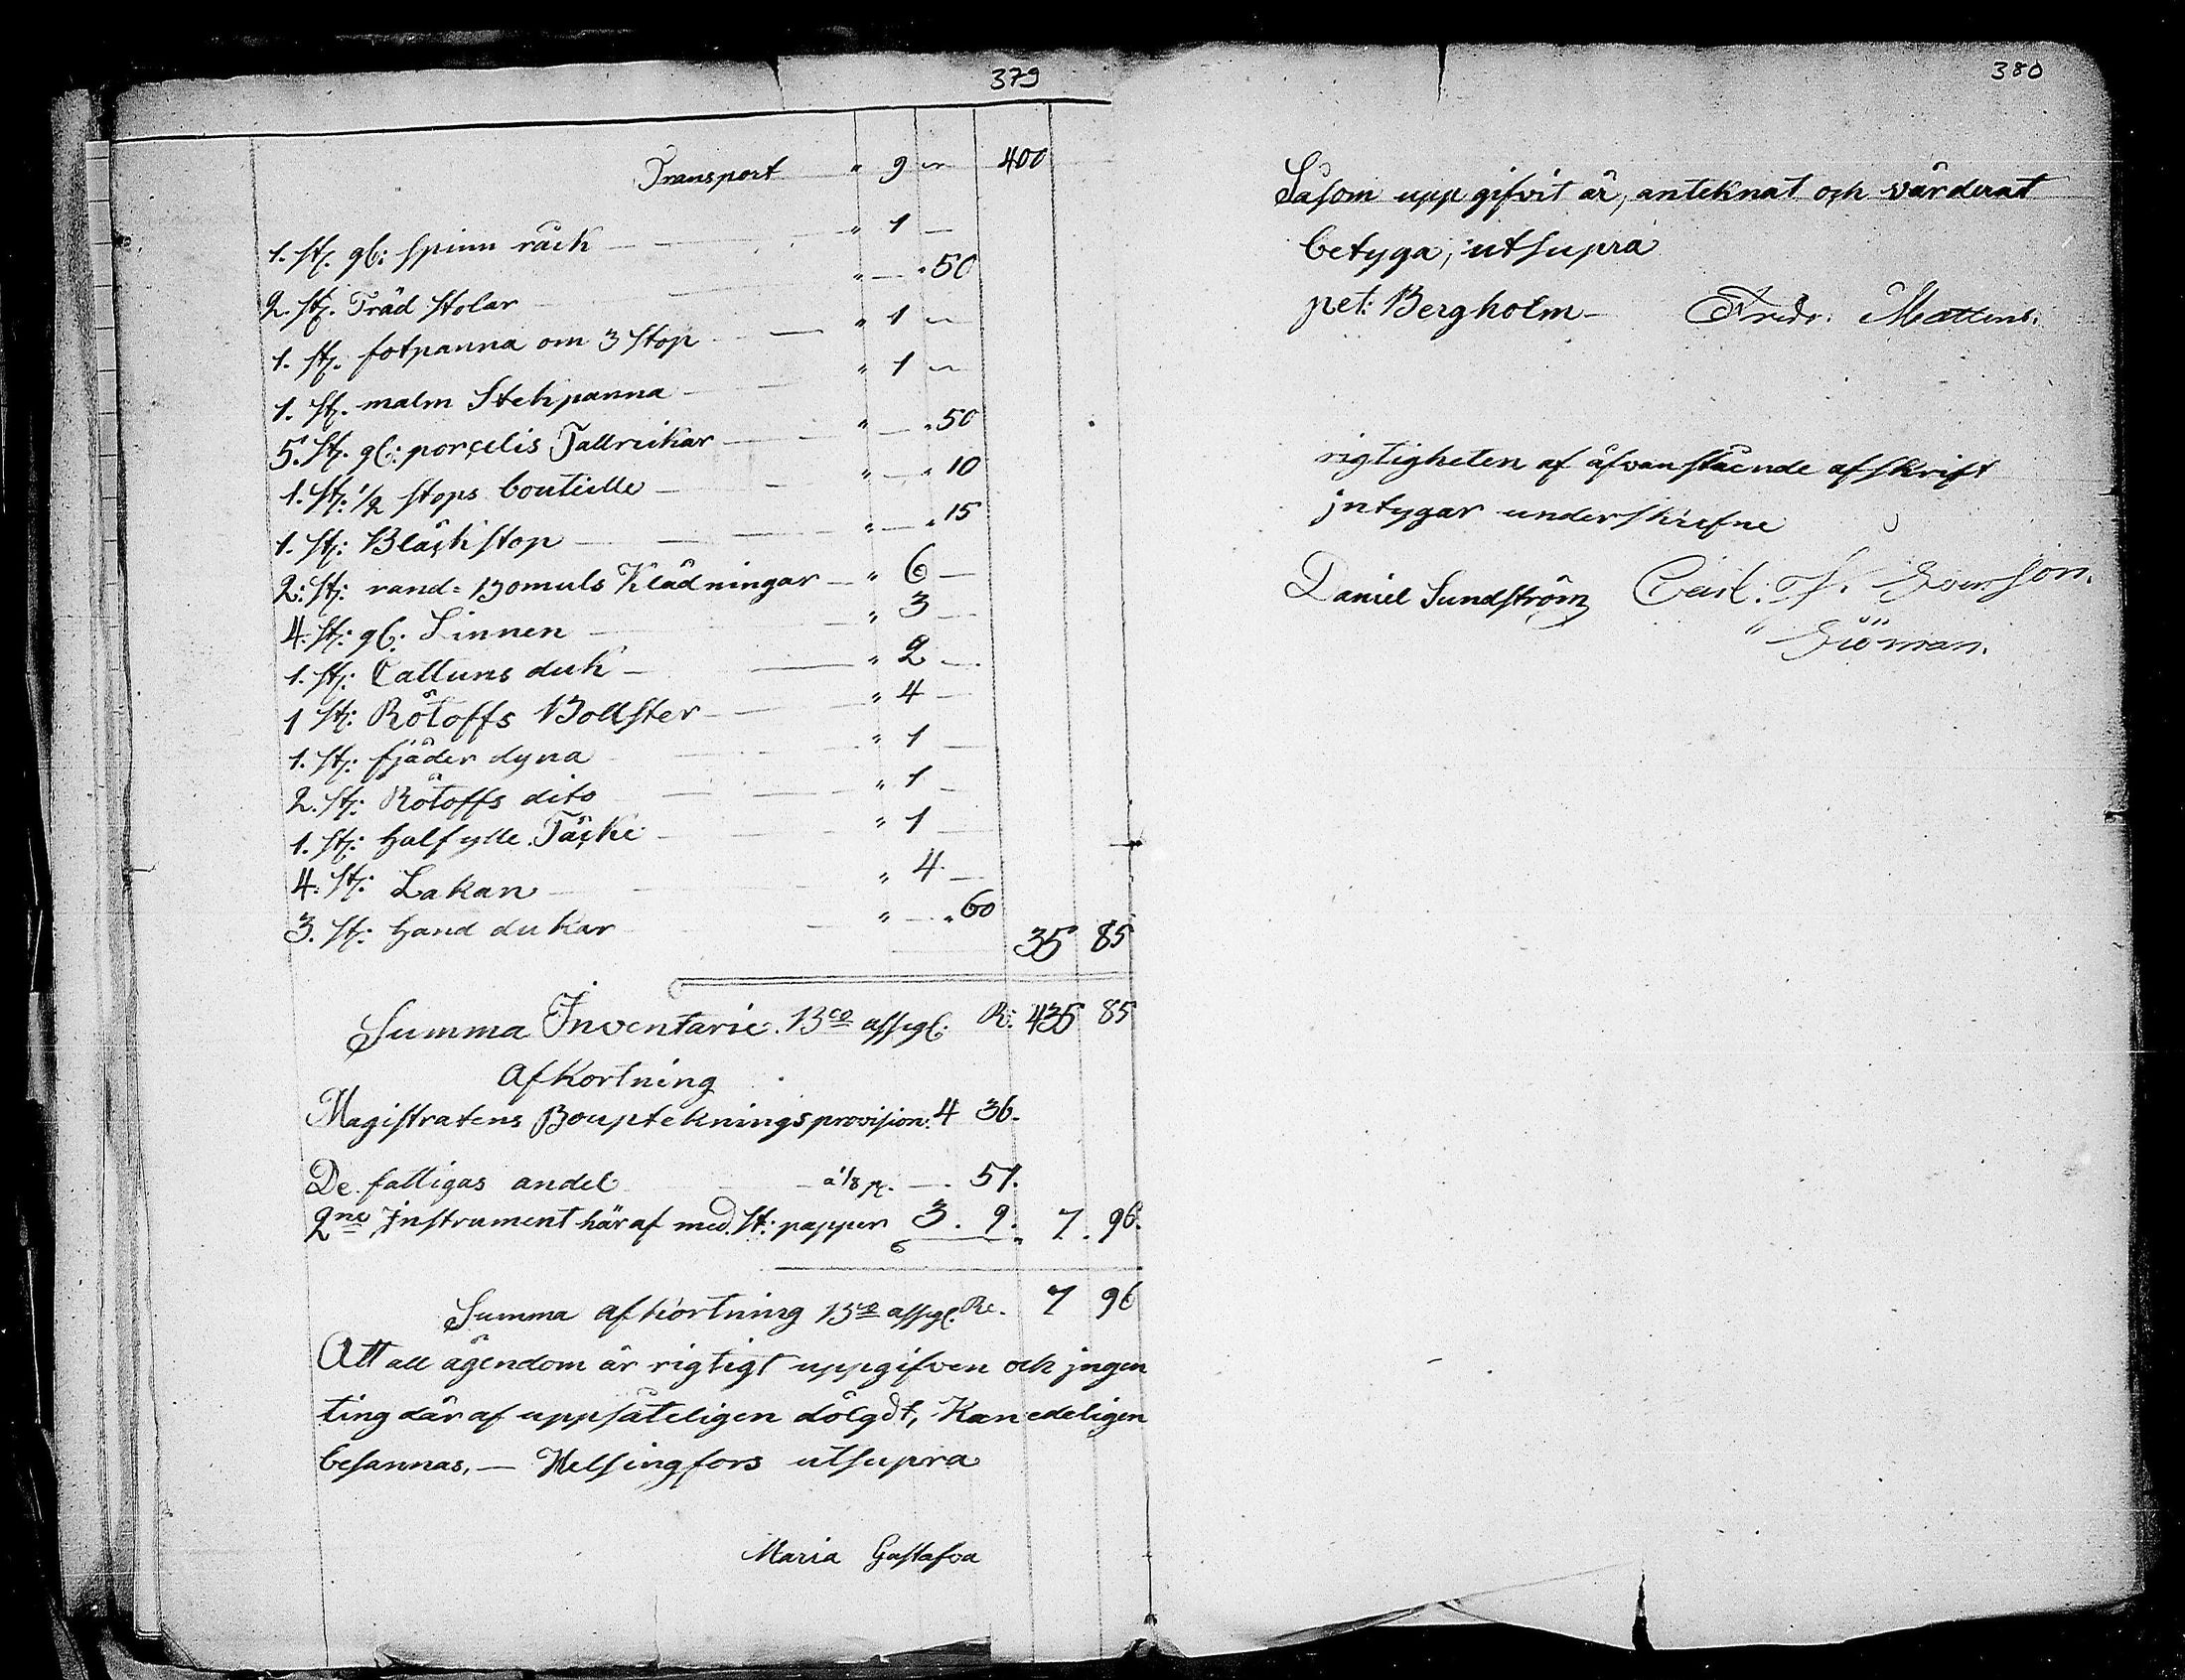 379
Transport " 9 " 400
1. st. gl: spinn råck — " 1 —
2. st. Träd stolar " — " 50
1. st. fotpanna om 3 stop — " 1 "
1. st. malm Stekpanna — " 1 "
5. st. gl: porcelis Tallrikar — " — " 50
1. st: 1/2 stops bouteille — " — " 10
1. st: Bläckstop — " — " 15
2: st: rand= Bomuls Klädningar — " 6 —
4. st: gl: Linnen " 3 —
1. st: Cattuns duk — " 2 —
1 st: Rötoffs Bollster — " 4 —
1. st: fjäder dyna " 1 —
2. st: Rötoffs dito — " 1 —
1. st: halfylle Täcke — " 1 —
4. st: Lakan — " 4 —
3. st: hand dukar — " — " 60
35 85
Summa Inventarie. Bco assigl: R: 435 85
Afkortning
Magistratens Bouptekningsprovision: 4 36.
De fattigas andel — a 1/8 pr. — . 51.
2ne Instrument häraf med St: papper 3. 9. 7. 96.
Summa afkortning Bco assigl. Rr. 7 96
Att all ägendom är rigtigt uppgifven och jngen
ting däraf uppsåteligen dölgdt, Kan edeligen
besannas, — Helsingfors utsupra
Maria Gustafva
380
Såsom uppgifvit är, anteknat och värderat
betyga, utsupra
pet: Bergholm — Fredr. Mattens.
rigtigheten af åfvanstående afskrift
jntygar underskrefne
Daniel Sundström Carl: Svensson.
" Siöman.